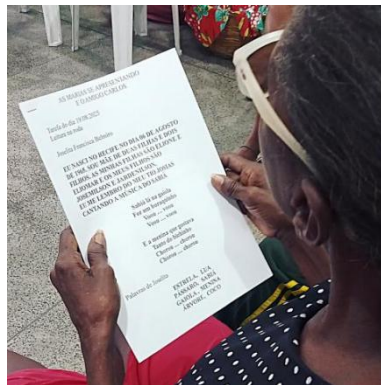 AS MARIAS SE APRESENTANDO
E O AMIGO CARLOS
Tarefa do dia 19/08/2025
Leitura na roda
Joselita Francisca Balbino
EU NASCI NO RECIFE NO DIA 06 DE AGOSTO
DE 1968, SOU MÃE DE DUAS FILHAS E DOIS
FILHOS. AS MINHAS FILHAS SÃO ELIONE E
ELIOMAR E OS MEUS FILHOS SÃO
JOSEMILSON E JARDENILSON.
EU ME LEMBRO DO MEU TIO JOSIAS
CANTANDO A MÚSICA DO SABIÁ
Sabiá lá na gaiola
Fez um buraquinho
Voou ... voou
Voou ... voou
E a menina que gostava
Tanto do bichinho
Chorou ... chorou
Chorou ... chorou
Palavras do Joselita
ESTRELA, LUA
PÁSSARO, SABIÁ
GAIOLA, MENINA
ÁRVORE, COCO